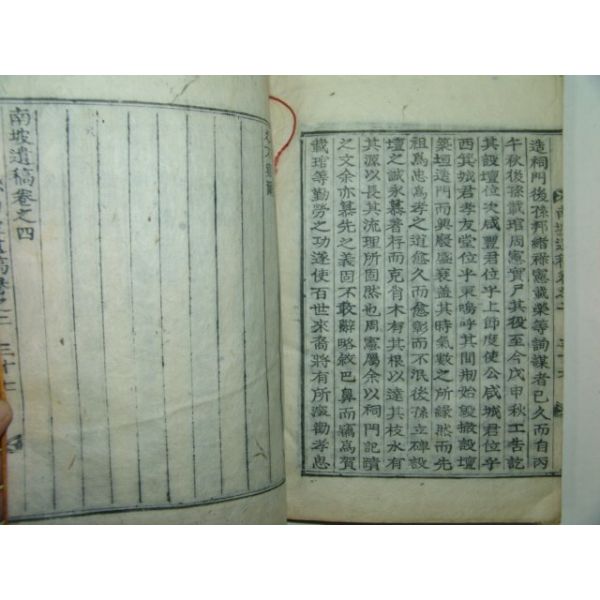 造祠門後孫邦緖祿憲載榮等詢謀者已久而自丙
午秋後孫載琯周憲實尸其役至今戊申秋工告訖
其設壇位次咸豐君位乎上節度使公咸城君位乎
西箕城君孝友堂位乎東嗚呼其間期始毀撤設壇
築垣造門而興廢盛衰蓋其時氣數之所緣然而先
祖爲忠爲孝之道愈久而愈彰而不泯後孫立碑設
壇之誠永慕著存而克肖木有其根以達其枝水有
其源以長其流理所固然也周憲屬余以祠門記請
之文余亦慕先之義固不敢辭略綴巴鼻而竊爲賀
載琯等勤勞之功遂使百世來裔將有所激勸孝思
南坡遺稿卷之四
三十七